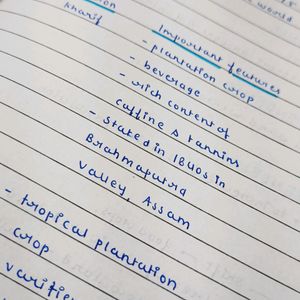 world
Kharif
Important features
- plantation crop
- beverage
- rich content of
caffine & tannins
- stated in 1840s in
Brahmaputra
valley, Assam
- tropical plantation
crop